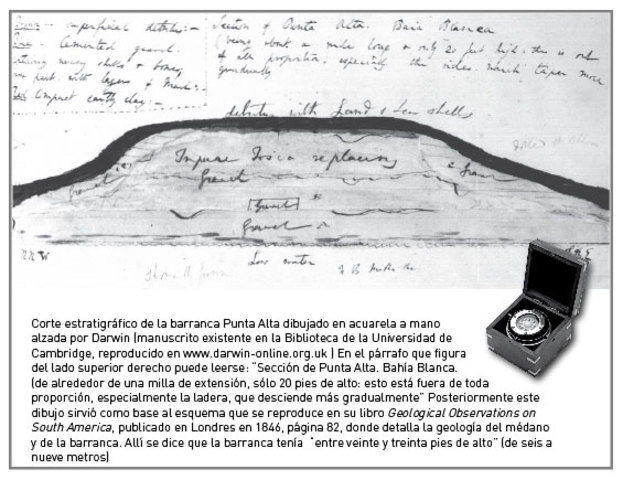 superficial detritus:-
Cemented gravel.
many shells & bones,
part with layers of
Compact earthy clay:-
Section of Punta Alta. Baia Blanca
(being about a mile long & only 20 feet high: this is out
of all proportion: especially the sides which taper more
gradually
detritus with Land & Sea shells
Gravel
Gravel
(Gravel)
Gravel
N N W
Low water
Corte estratigráfico de la barranca Punta Alta dibujado en acuarela a mano
alzada por Darwin (manuscrito existente en la Biblioteca de la Universidad de
Cambridge, reproducido en www.darwin-online.org.uk ) En el párrafo que figura
del lado superior derecho puede leerse: "Sección de Punta Alta. Bahía Blanca.
(de alrededor de una milla de extensión, sólo 20 pies de alto: esto está fuera de toda
proporción, especialmente la ladera, que desciende más gradualmente" Posteriormente este
dibujo sirvió como base al esquema que se reproduce en su libro Geological Observations on
South America, publicado en Londres en 1846, página 82, donde detalla la geología del médano
y de la barranca. Allí se dice que la barranca tenía "entre veinte y treinta pies de alto" (de seis a
nueve metros)